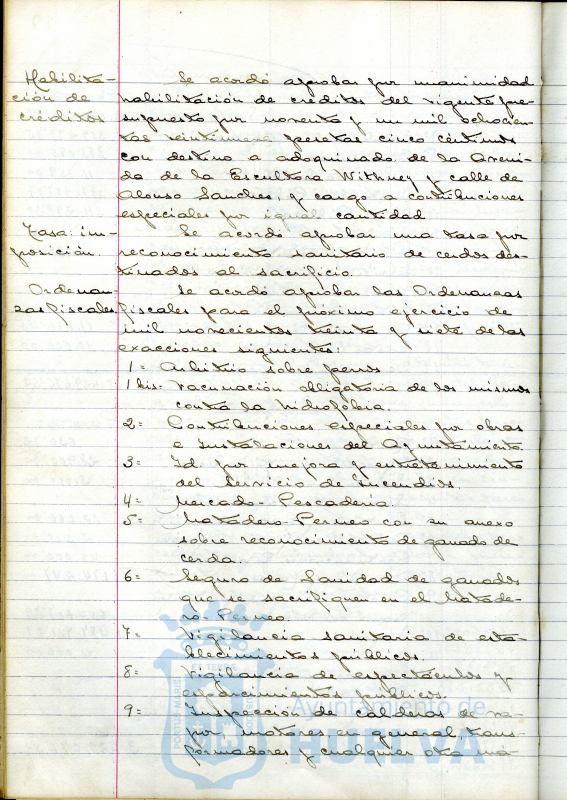 Habilita-
ción de
créditos
Se acordó aprobar por unanimidad
habilitación de créditos del vigente pre-
supuesto por noventa y un mil ochocien-
tas veintinueve pesetas cinco céntimos
con destino a adoquinado de la Aveni-
da de la Escultora Withney y calle de
Alonso Sanches, y cargo a contribuciones
especiales por igual cantidad
Tasa: im-
posición.
Se acordó aprobar una tasa por
reconocimiento sanitario de cerdos des-
tinados al sacrificio.
Ordenan-
zas fiscales
Se acordó aprobar las Ordenanzas
fiscales para el próximo ejercicio de
mil novecientos treinta y siete de las
exacciones siguientes:
1= Arbitrio sobre perros
1 bis= Vacunación obligatoria de los mismos
contra la hidrofobia.
2= Contribuciones especiales por obras
e Instalaciones del Ayuntamiento
3= Id. por mejora y entretenimiento
del Servicio de Incendios.
4= Mercado-Pescadería.
5= Matadero-Perneo con su anexo
sobre reconocimiento de ganado de
cerda.
6= Seguro de Sanidad de ganados
que se sacrifiquen en el Matade-
ro-Perneo.
7= Vigilancia sanitaria de esta-
blecimientos públicos.
8= Vigilancia de espectáculos y
esparcimientos públicos.
9= Inspección de calderas de va-
por, motores en general, trans-
formadores y cualquier otra má-
PORTUS MARIS
ET TERRE
CUSTODIA
Ayuntamiento de
HUELVA